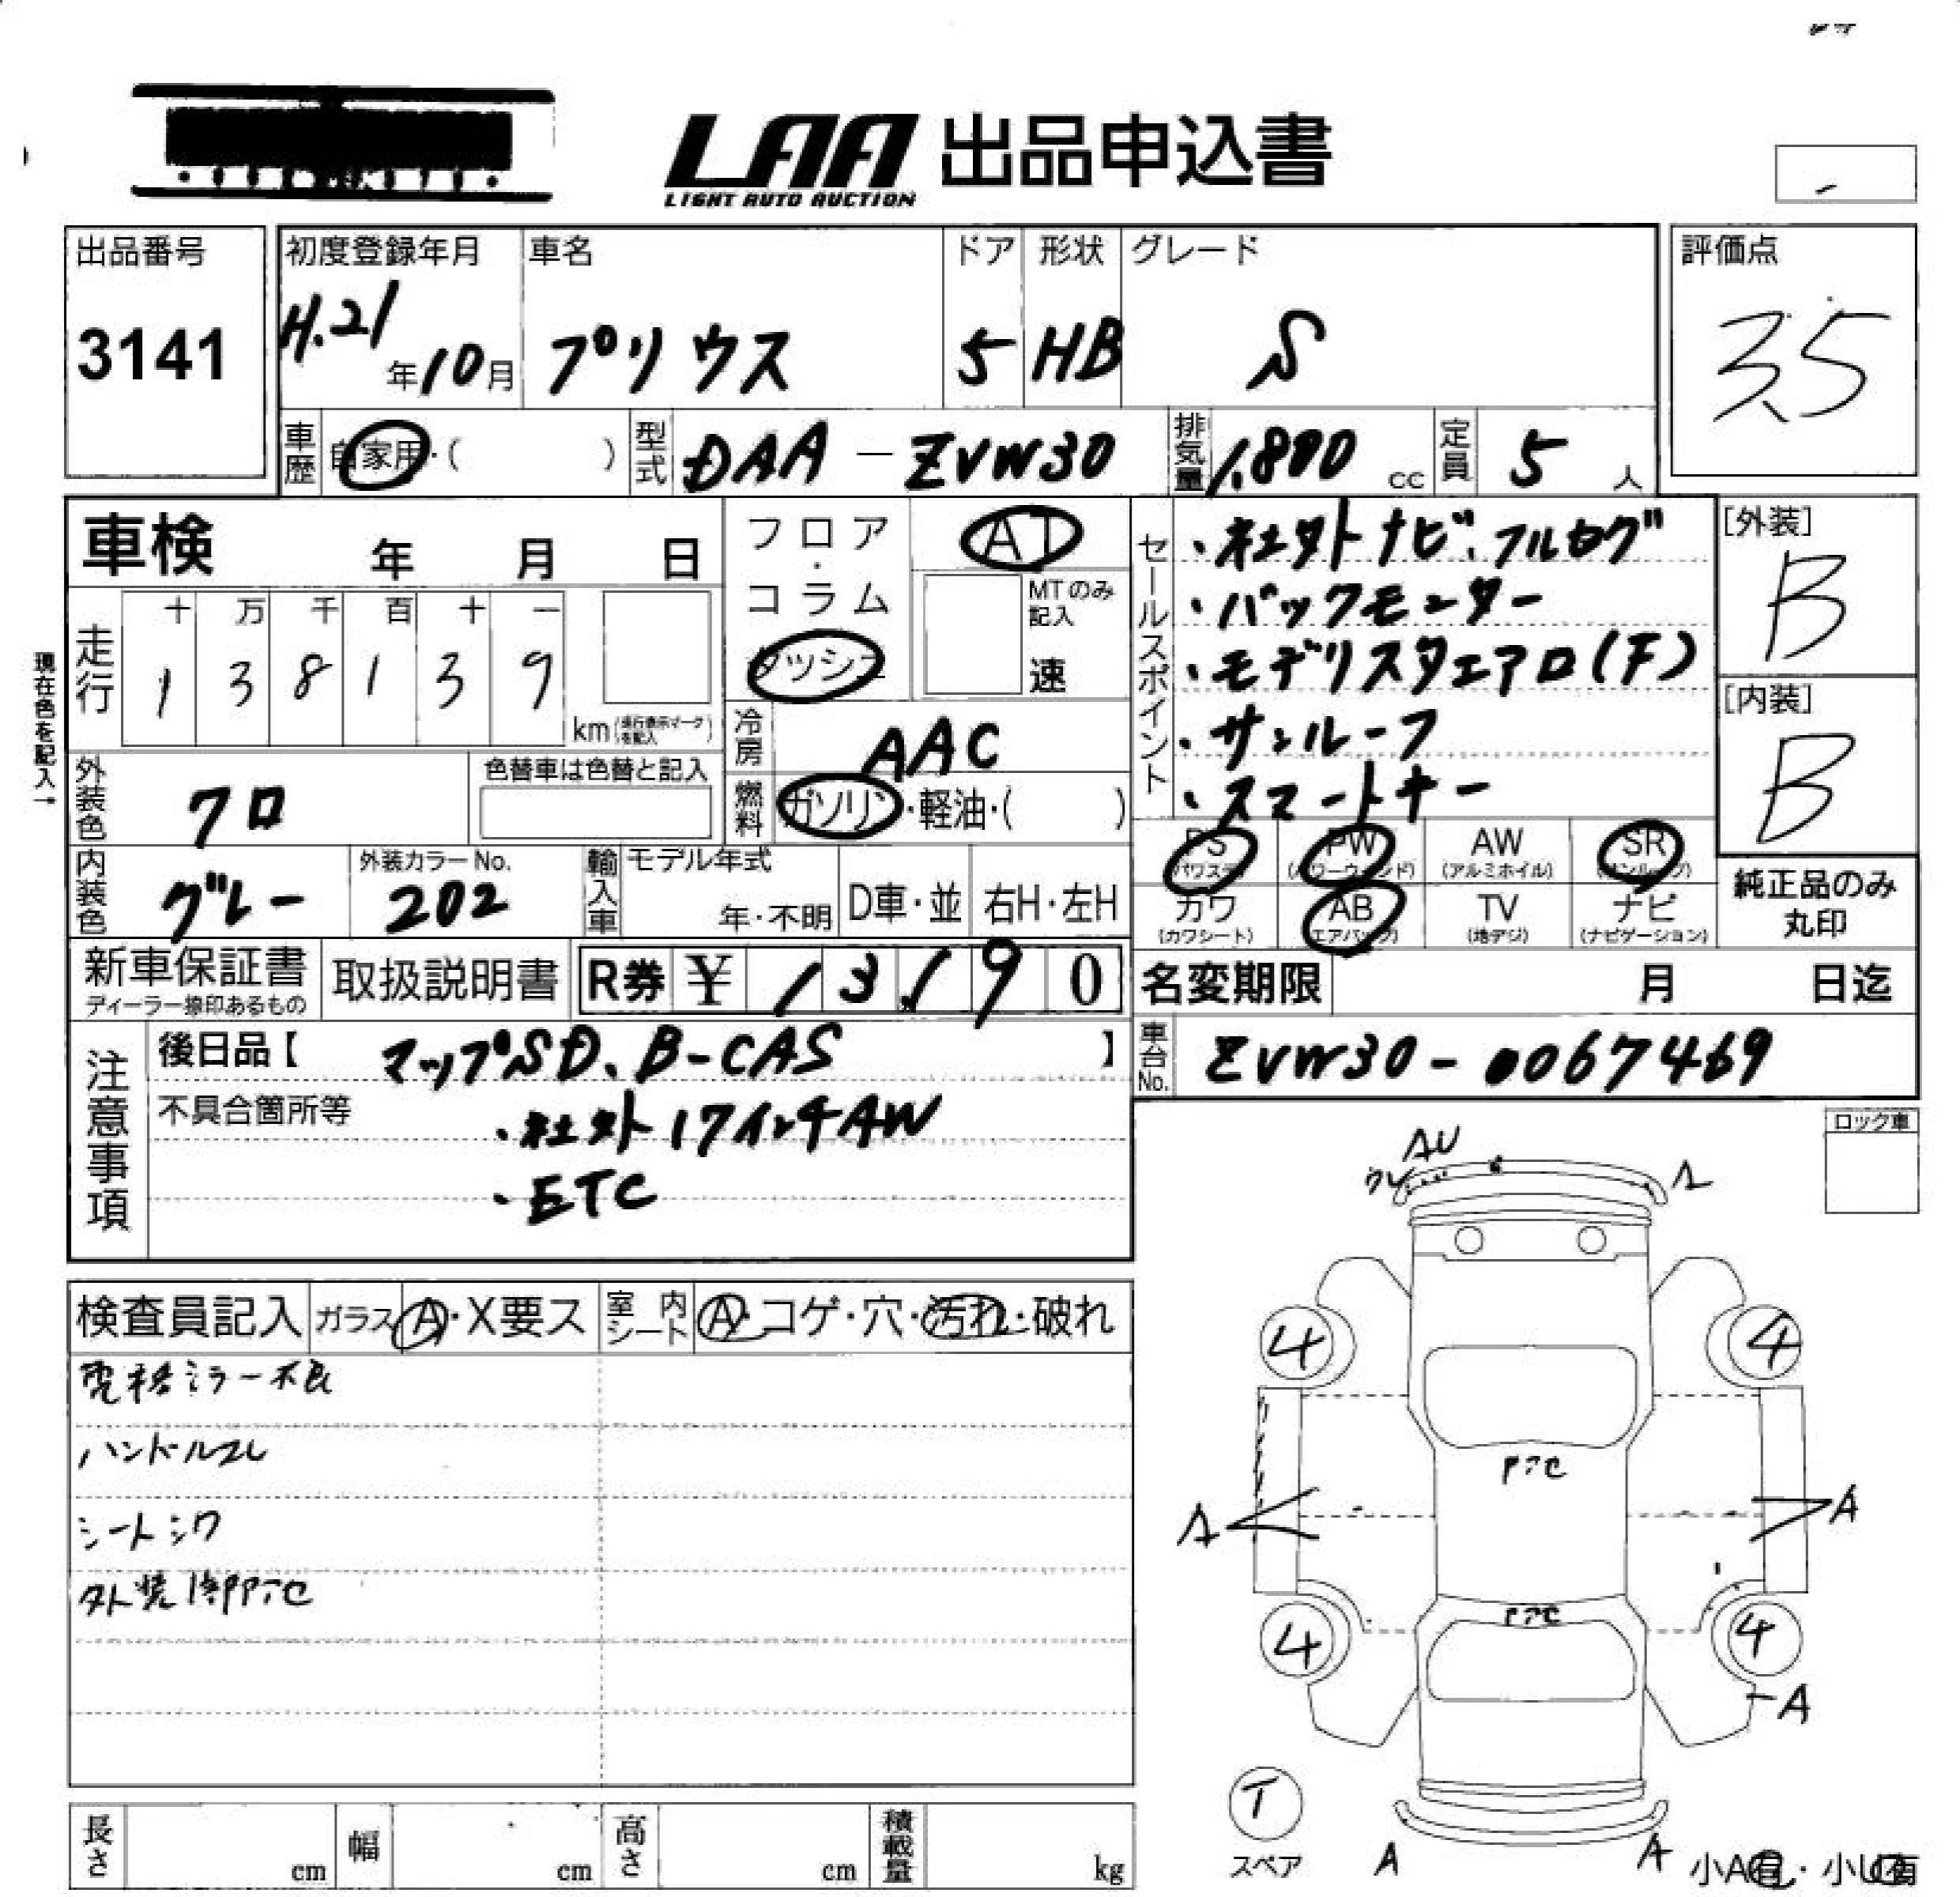 LAA 出品申込書
LIGHT AUTO AUCTION
出品番号
3141
初度登録年月
H.21年10月
車名
プリウス
ドア
5
形状
HB
グレード
S
評価点
3.5
車歴 自家用・( )
型式 DAA-ZVW30
排気量 1,800 cc
定員 5 人
車検 年 月 日
フロア・コラム
ダッシュ
AT
MTのみ記入
速
現在色を記入→
走行
十 万 千 百 十 一
1 3 8 1 3 9
km (走行表示マークを記入)
冷房 AAC
外装色 クロ
色替車は色替と記入
燃料 ガソリン・軽油・( )
内装色 グレー
外装カラーNo.
202
輸入車
モデル年式
年・不明
D車・並
右H・左H
セールスポイント
・社外ナビ、フルセグ
・バックモニター
・モデリスタエアロ(F)
・サンルーフ
・スマートキー
[外装]
B
[内装]
B
PS (パワステ)
PW (パワーウィンド)
AW (アルミホイル)
SR (サンルーフ)
カワ (カワシート)
AB (エアバッグ)
TV (地デジ)
ナビ (ナビゲーション)
純正品のみ丸印
新車保証書
ディーラー捺印あるもの
取扱説明書
R券 ¥ 13,190
名変期限 月 日迄
車台No. ZVW30-0067469
注意事項
後日品【 マップSD、B-CAS 】
不具合箇所等
・社外17インチAW
・ETC
ロック車
検査員記入
ガラス A・X要ス
室内シート A・コゲ・穴・汚れ・破れ
電格ミラー不良
ハンドルスレ
シートシワ
AU
A
4
4
A
A
4
4
A
T
スペア
A
A
小A有・小U有
長さ cm
幅 cm
高さ cm
積載量 kg